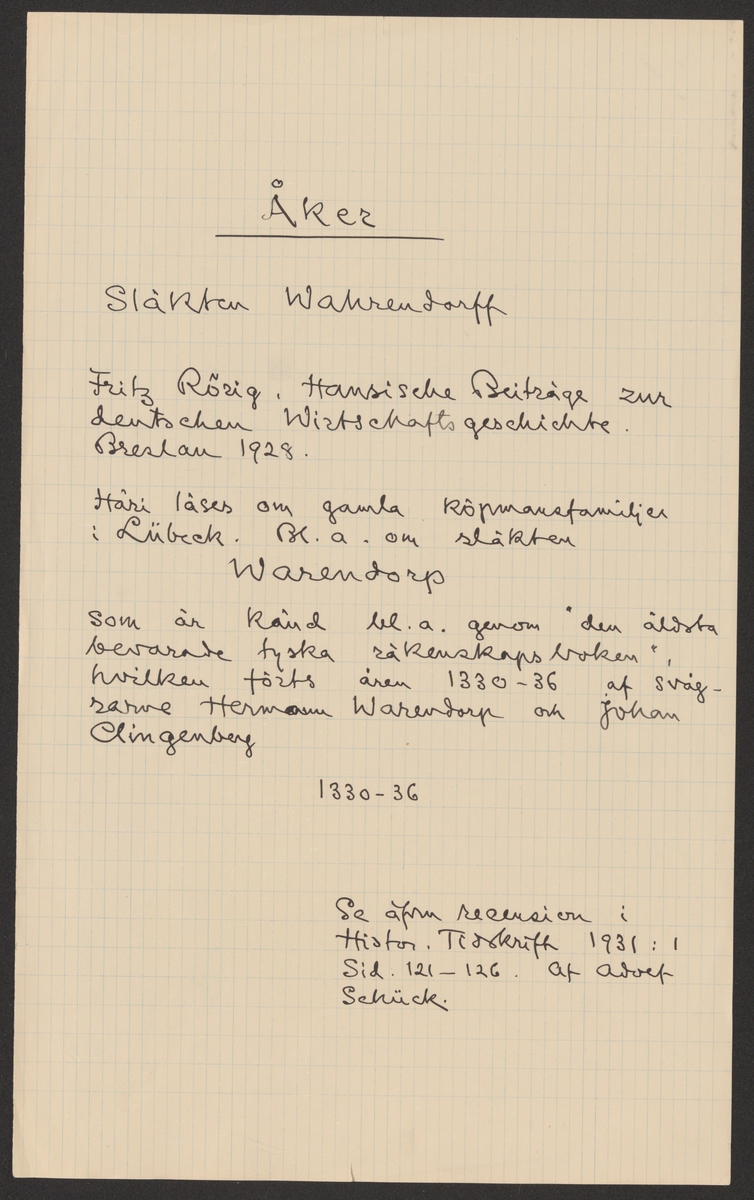 Åker
Släkten Wahrendorff
Fritz Rörig. Hansische Beiträge zur
deutschen Wirtschaftsgeschichte.
Breslau 1928.
Häri läses om gamla köpmansfamiljer
i Lübeck. Bl. a. om släkten
Warendorp
som är känd bl. a. genom "den äldsta
bevarade tyska räkenskapsboken",
hvilken förts åren 1330-36 af svåg-
rarne Hermann Warendorp och Johan
Clingenberg
1330-36
Se äfven recension i
Histor. Tidskrift 1931:1
Sid. 121-126. Af Adolf
Schück.